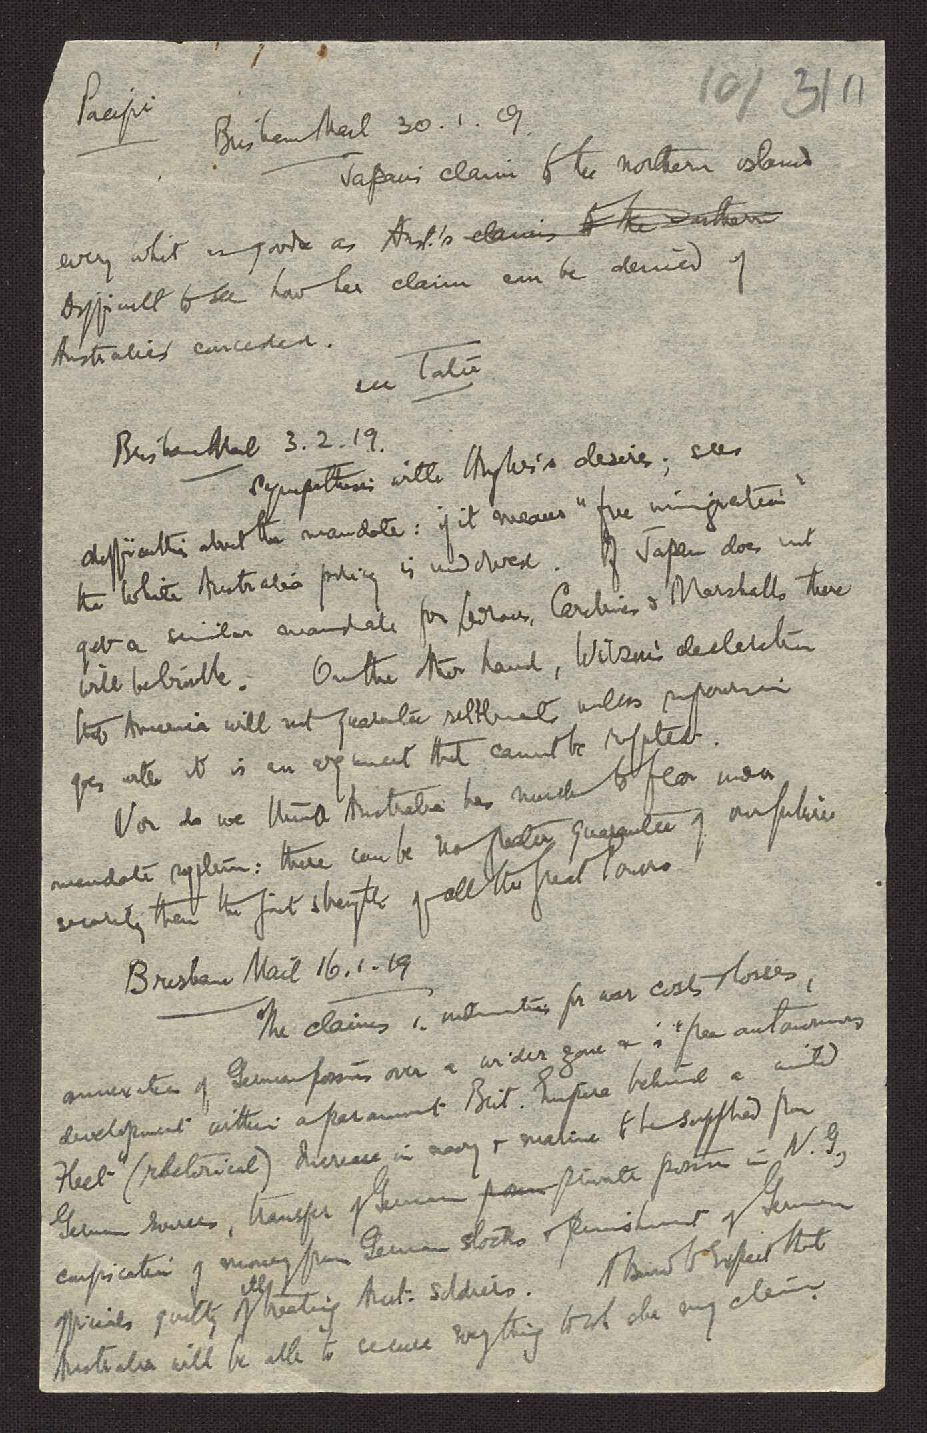 Pacific
101 3/11
Brisbane Mail 30.1.19.
Japan's claim to the northern islands
every whit as good as Aust.'s claims to the northern
difficult to see how her claim can be denied if
Australia's conceded.
see Table
Brisbane Mail 3.2.19.
Sympathises with Hughes's desires; sees
difficulties about the mandate: if it means "free immigration"
the White Australia policy is undone. If Japan does not
get a similar mandate for Ladrones, Carolines & Marshalls there
will be trouble. On the other hand, Wilson's declaration
that America will not guarantee settlement unless
goes with it is an argument that cannot be
Nor do we think Australia has much to fear under
mandate system: there can be no greater guarantee of our future
security than the joint strength of all the great Powers
Brisbane Mail 16.1.19
The claims i. indemnities for war costs & losses,
annexation of German possns over a wider zone & is "free autonomous
development within a paramount Brit. Empire behind a united
Fleet" (rhetorical) Increase in navy & marine to be supplied from
German sources, transfer of German possn private possn in N.G.,
confiscation of money from German stocks & punishment of German
officials guilty of ill treating Aust. soldiers. Absurd to expect that
Australia will be able to secure everything